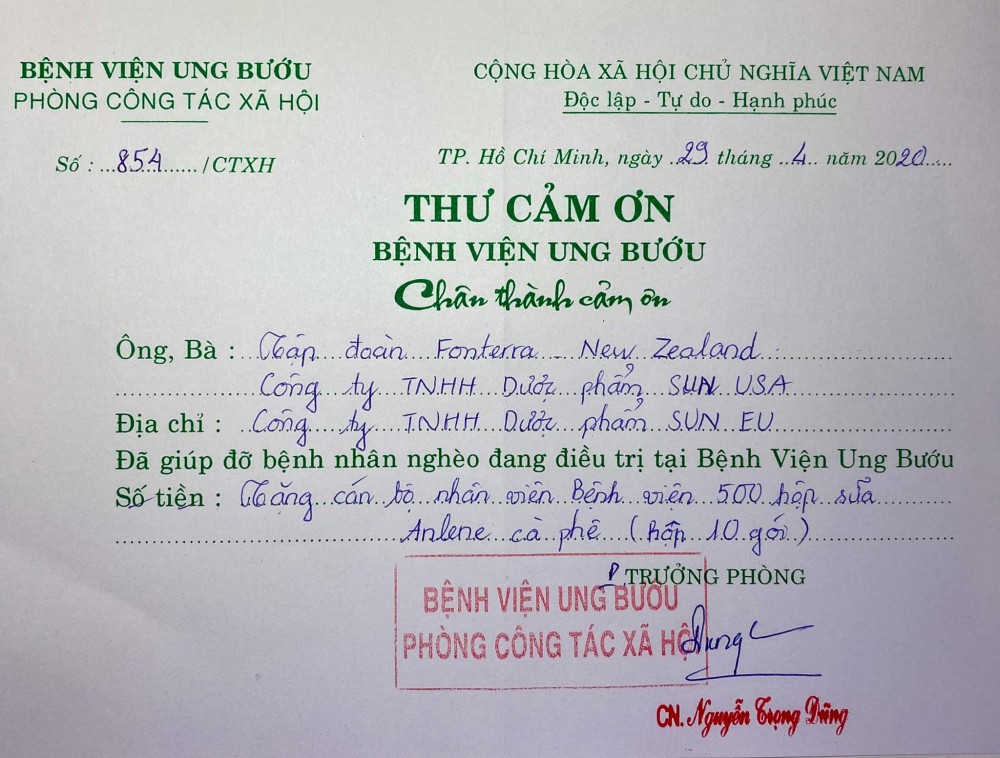 BỆNH VIỆN UNG BƯỚU
PHÒNG CÔNG TÁC XÃ HỘI
CỘNG HÒA XÃ HỘI CHỦ NGHĨA VIỆT NAM
Độc lập - Tự do - Hạnh phúc
Số : ...854....../CTXH
TP. Hồ Chí Minh, ngày .29. tháng ..4.. năm 2020.....
THƯ CẢM ƠN
BỆNH VIỆN UNG BƯỚU
Chân thành cảm ơn
Ông, Bà : Tập đoàn Fonterra - New Zealand
Công ty TNHH Dược phẩm SUN USA
Địa chỉ : Công ty TNHH Dược phẩm SUN EU
Đã giúp đỡ bệnh nhân nghèo đang điều trị tại Bệnh Viện Ung Bướu
Số tiền : Tặng cán bộ nhân viên Bệnh viện 500 hộp sữa
Anlene cà phê (hộp 10 gói)
P TRƯỞNG PHÒNG
BỆNH VIỆN UNG BƯỚU
PHÒNG CÔNG TÁC XÃ HỘI
Dung
CN. Nguyễn Trọng Dũng